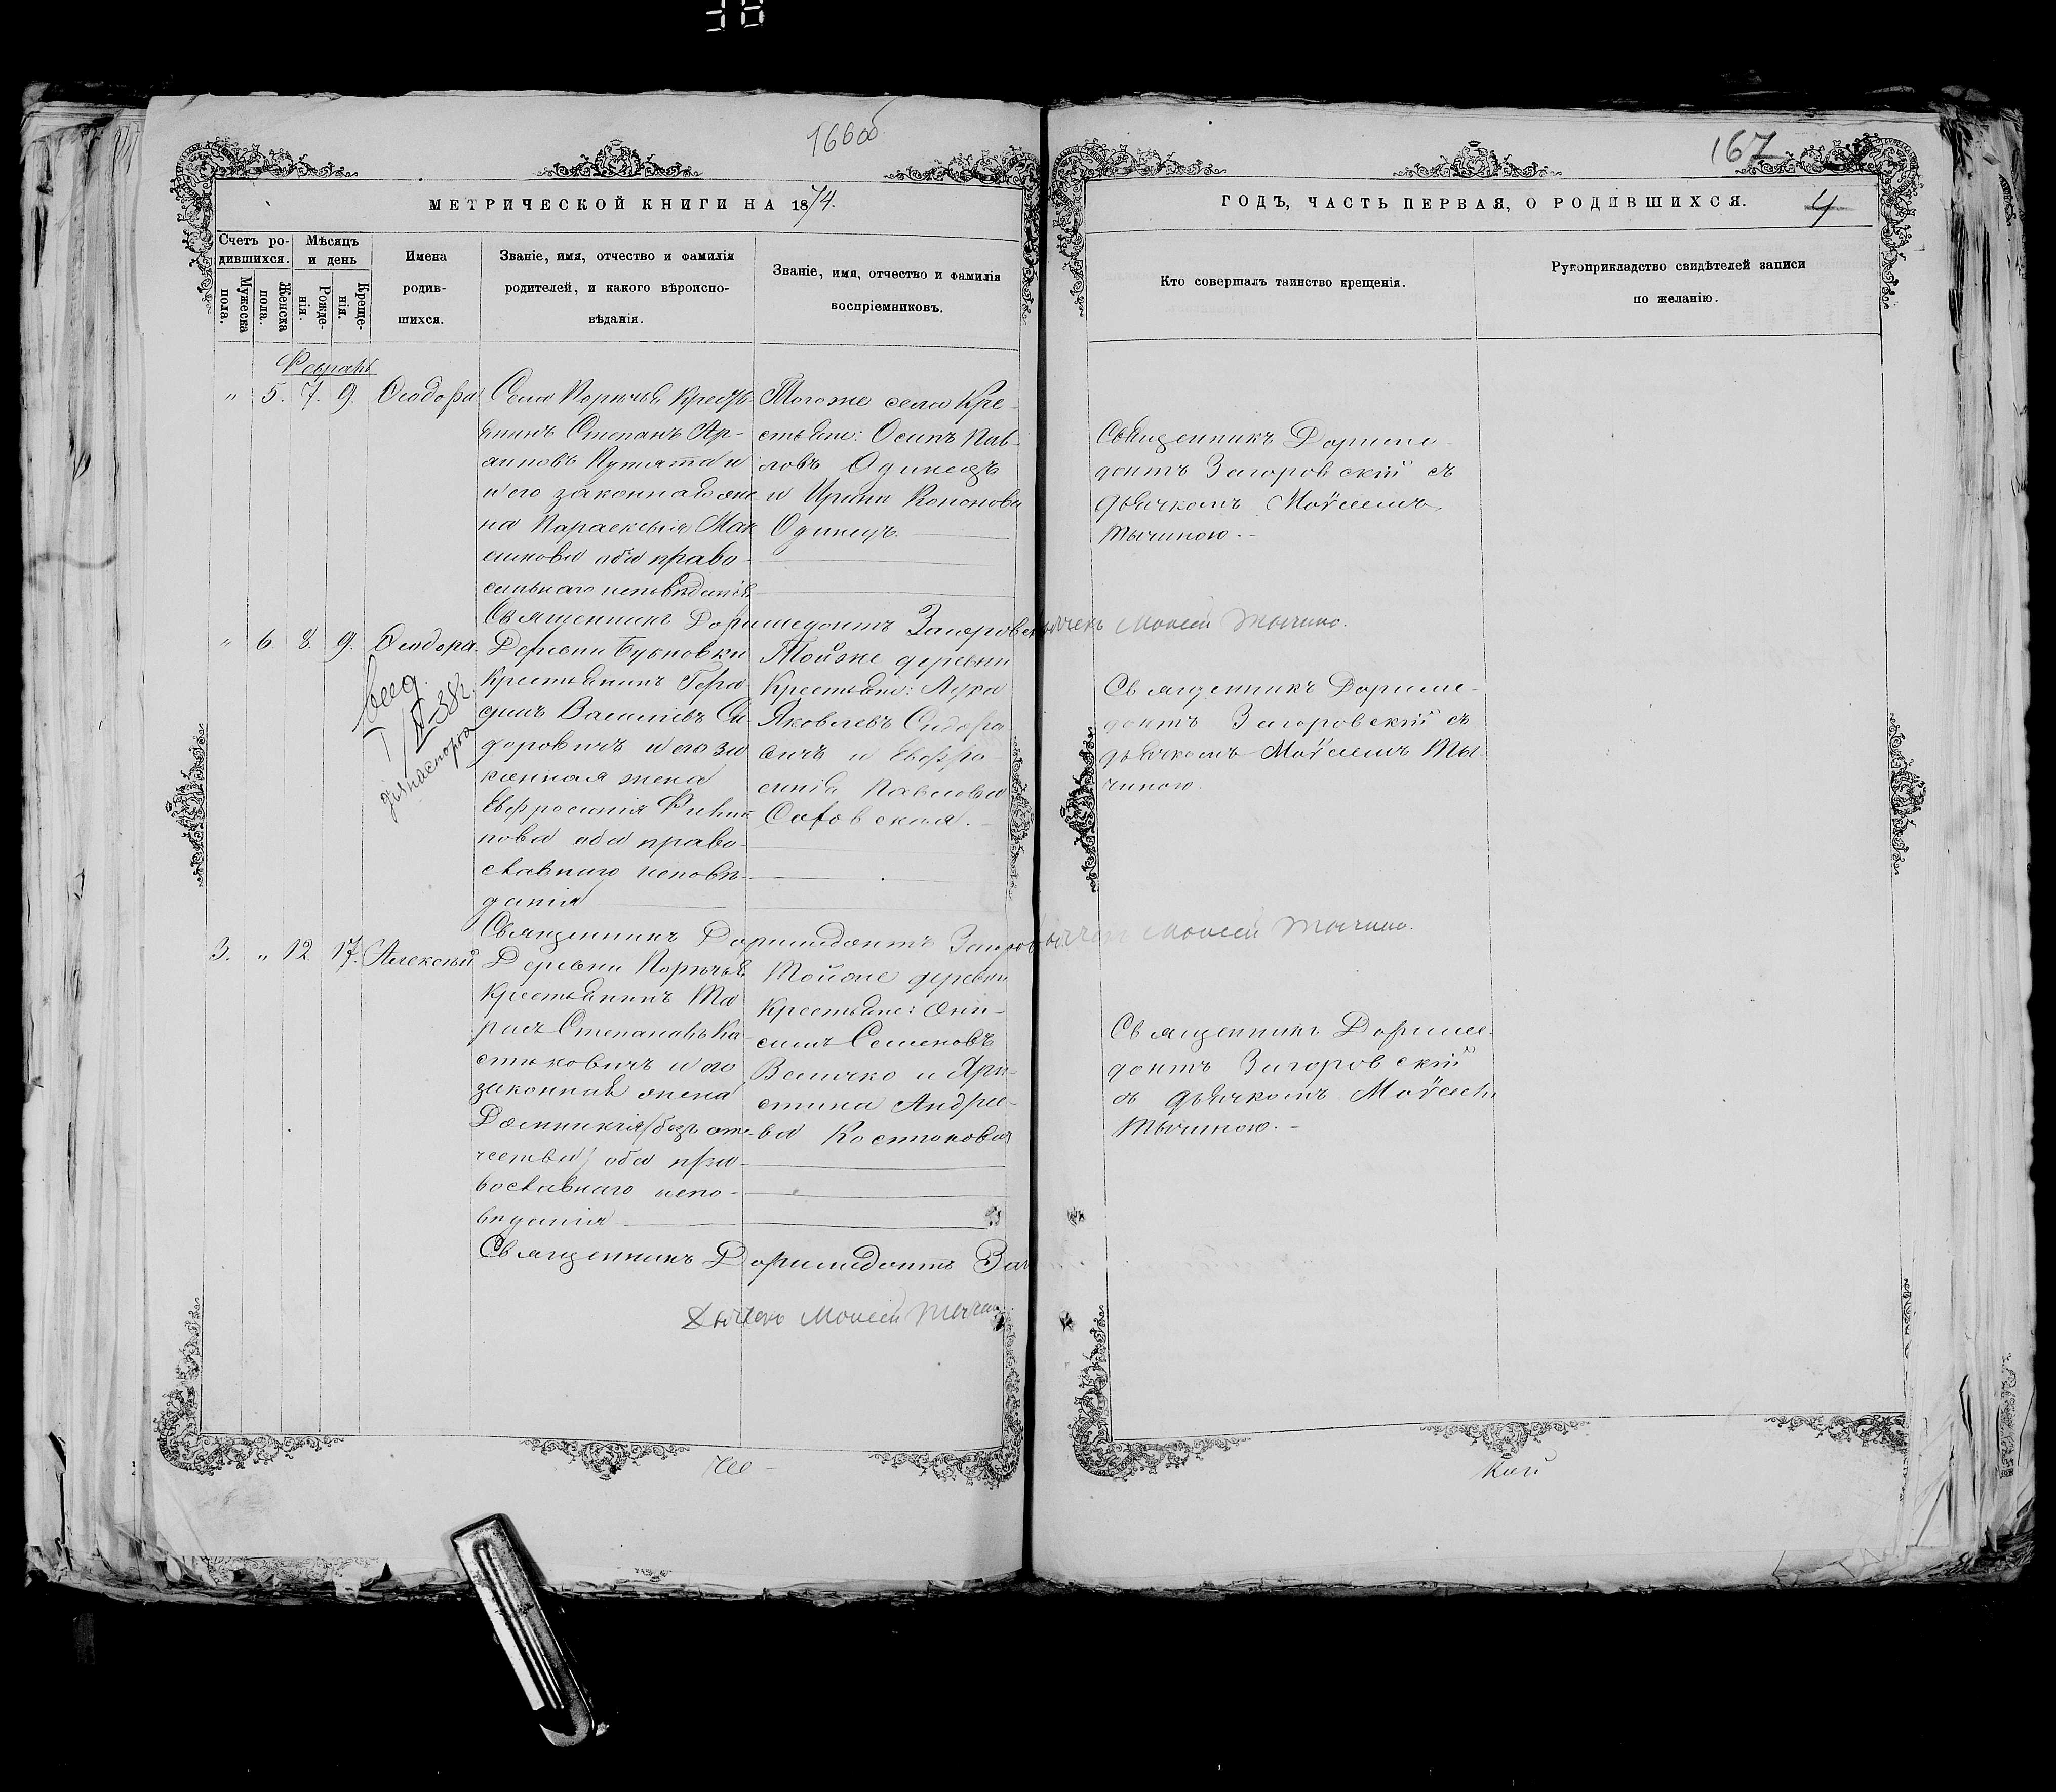 166об
167
МЕТРИЧЕСКОЙ КНИГИ НА 1874.
ГОДЪ, ЧАСТЬ ПЕРВАЯ, О РОДИВШИХСЯ.
4
Счетъ ро-
дившихся.
Мужеска
пола.
Женска
пола.
Мѣсяцъ
и день
Рожде-
нія.
Креще-
нія.
Имена
родив-
шихся.
Званіе, имя, отчество и фамилія
родителей, и какого вѣроиспо-
вѣданія.
Званіе, имя, отчество и фамилія
воспріемниковъ.
Кто совершалъ таинство крещенія.
Рукоприкладство свидѣтелей записи
по желанію.
Февраль
" 5. 7. 9. Ѳеодора
Села Порѣчья Кресть-
янинъ Степанъ
Путята и
и его законная же-
на Параскевія Мак
симова оба право-
славнаго исповѣданія
Тогоже села Кре-
стьяне: Осипъ Пав-
ловъ Одинецъ
и Ирина Кононова
Одинецъ.
Священникъ Дориме-
донтъ Загоровскій съ
дьячкомъ Моѵсеемъ
Тычиною.-
Священникъ Доримедонтъ
Моисей Тычина.
" 6. 8. 9. Ѳеодора.
Деревни
Крестьянинъ Гера
симъ Васильевъ Си
доровичъ и его за
конная жена
Евфросинія Филип
пова оба право-
славнаго исповѣ-
данія
Тойже деревни
Крестьяне:
Яковлевъ Сидоро
вичъ и Евфро-
синія Павлова
Священникъ Дориме-
донтъ Загоровскій съ
дьячкомъ Моѵсеемъ Ты-
чиною.
Священникъ Доримедонтъ
Моисей Тычина.
3. " 12. 17. Алексѣй
Деревни Порѣчья
Крестьянинъ Та
расъ Степановъ Ко-
стюковичъ и его
законная жена
Домникія (безъ оте-
чества) оба пра-
вославнаго испо-
вѣданія
Тойже деревни
Крестьяне: Они-
симъ Семеновъ
Величко и Хри-
стина Андрее-
ва Костюкова
Священникъ Дориме-
донтъ Загоровскій
съ дьячкомъ Моѵсеемъ
Тычиною.-
Священникъ Доримедонтъ Заг
Дьячекъ Моисей Тычина